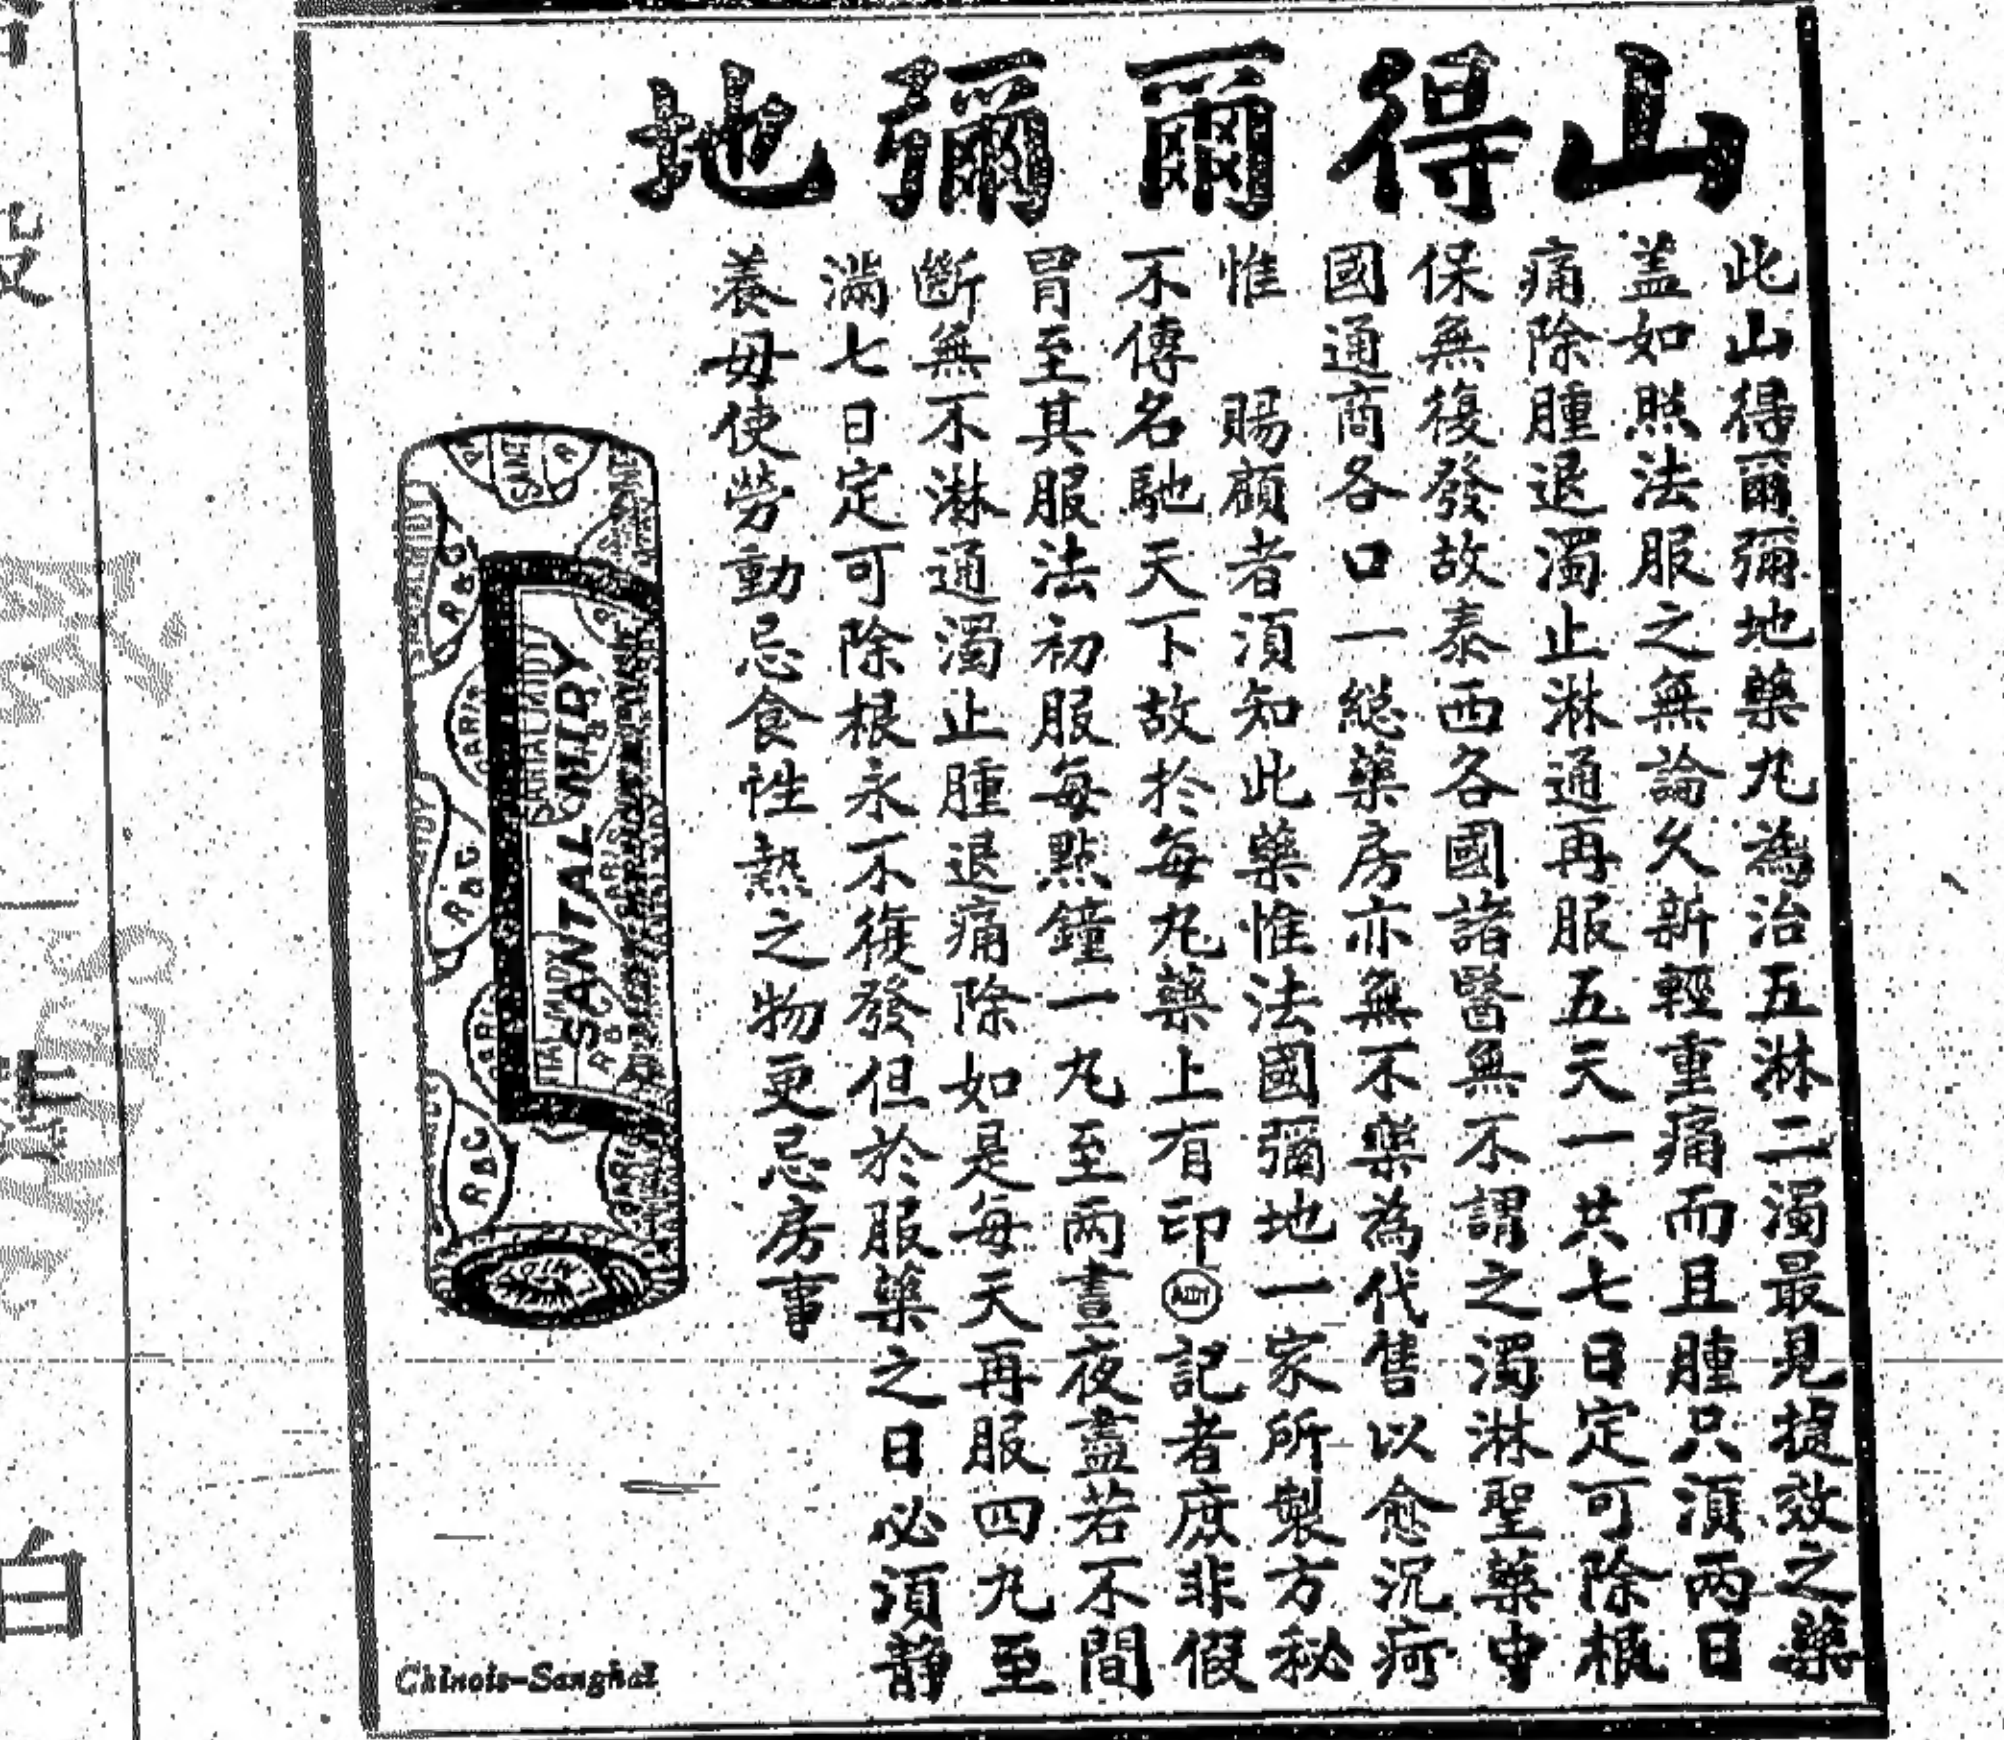 山得爾彌地
此山得爾彌地藥丸為治五淋二濁最見捷效之藥
盖如照法服之無論久新輕重痛而且腫只須兩日
痛除腫退濁止淋通再服五天一共七日定可除根
保無復發故泰西各國諸醫無不謂之濁淋聖藥中
國通商各口一總藥房亦無不樂為代售以愈沉疴
惟 賜顧者須知此藥惟法國彌地一家所製方秘
不傳名馳天下故於每丸藥上有印MIDY記者庶非假
冒至其服法初服每點鐘一丸至兩晝夜盡若不間
斷無不淋通濁止腫退痛除如是每天再服四丸至
滿七日定可除根永不復發但於服藥之日必須靜
養毋使勞動忌食性熱之物更忌房事
SANTAL MIDY
SANTAL MIDY
PARIS
R&C
R&C
R&C
PARIS
MIDY
Chinois-Sanghai